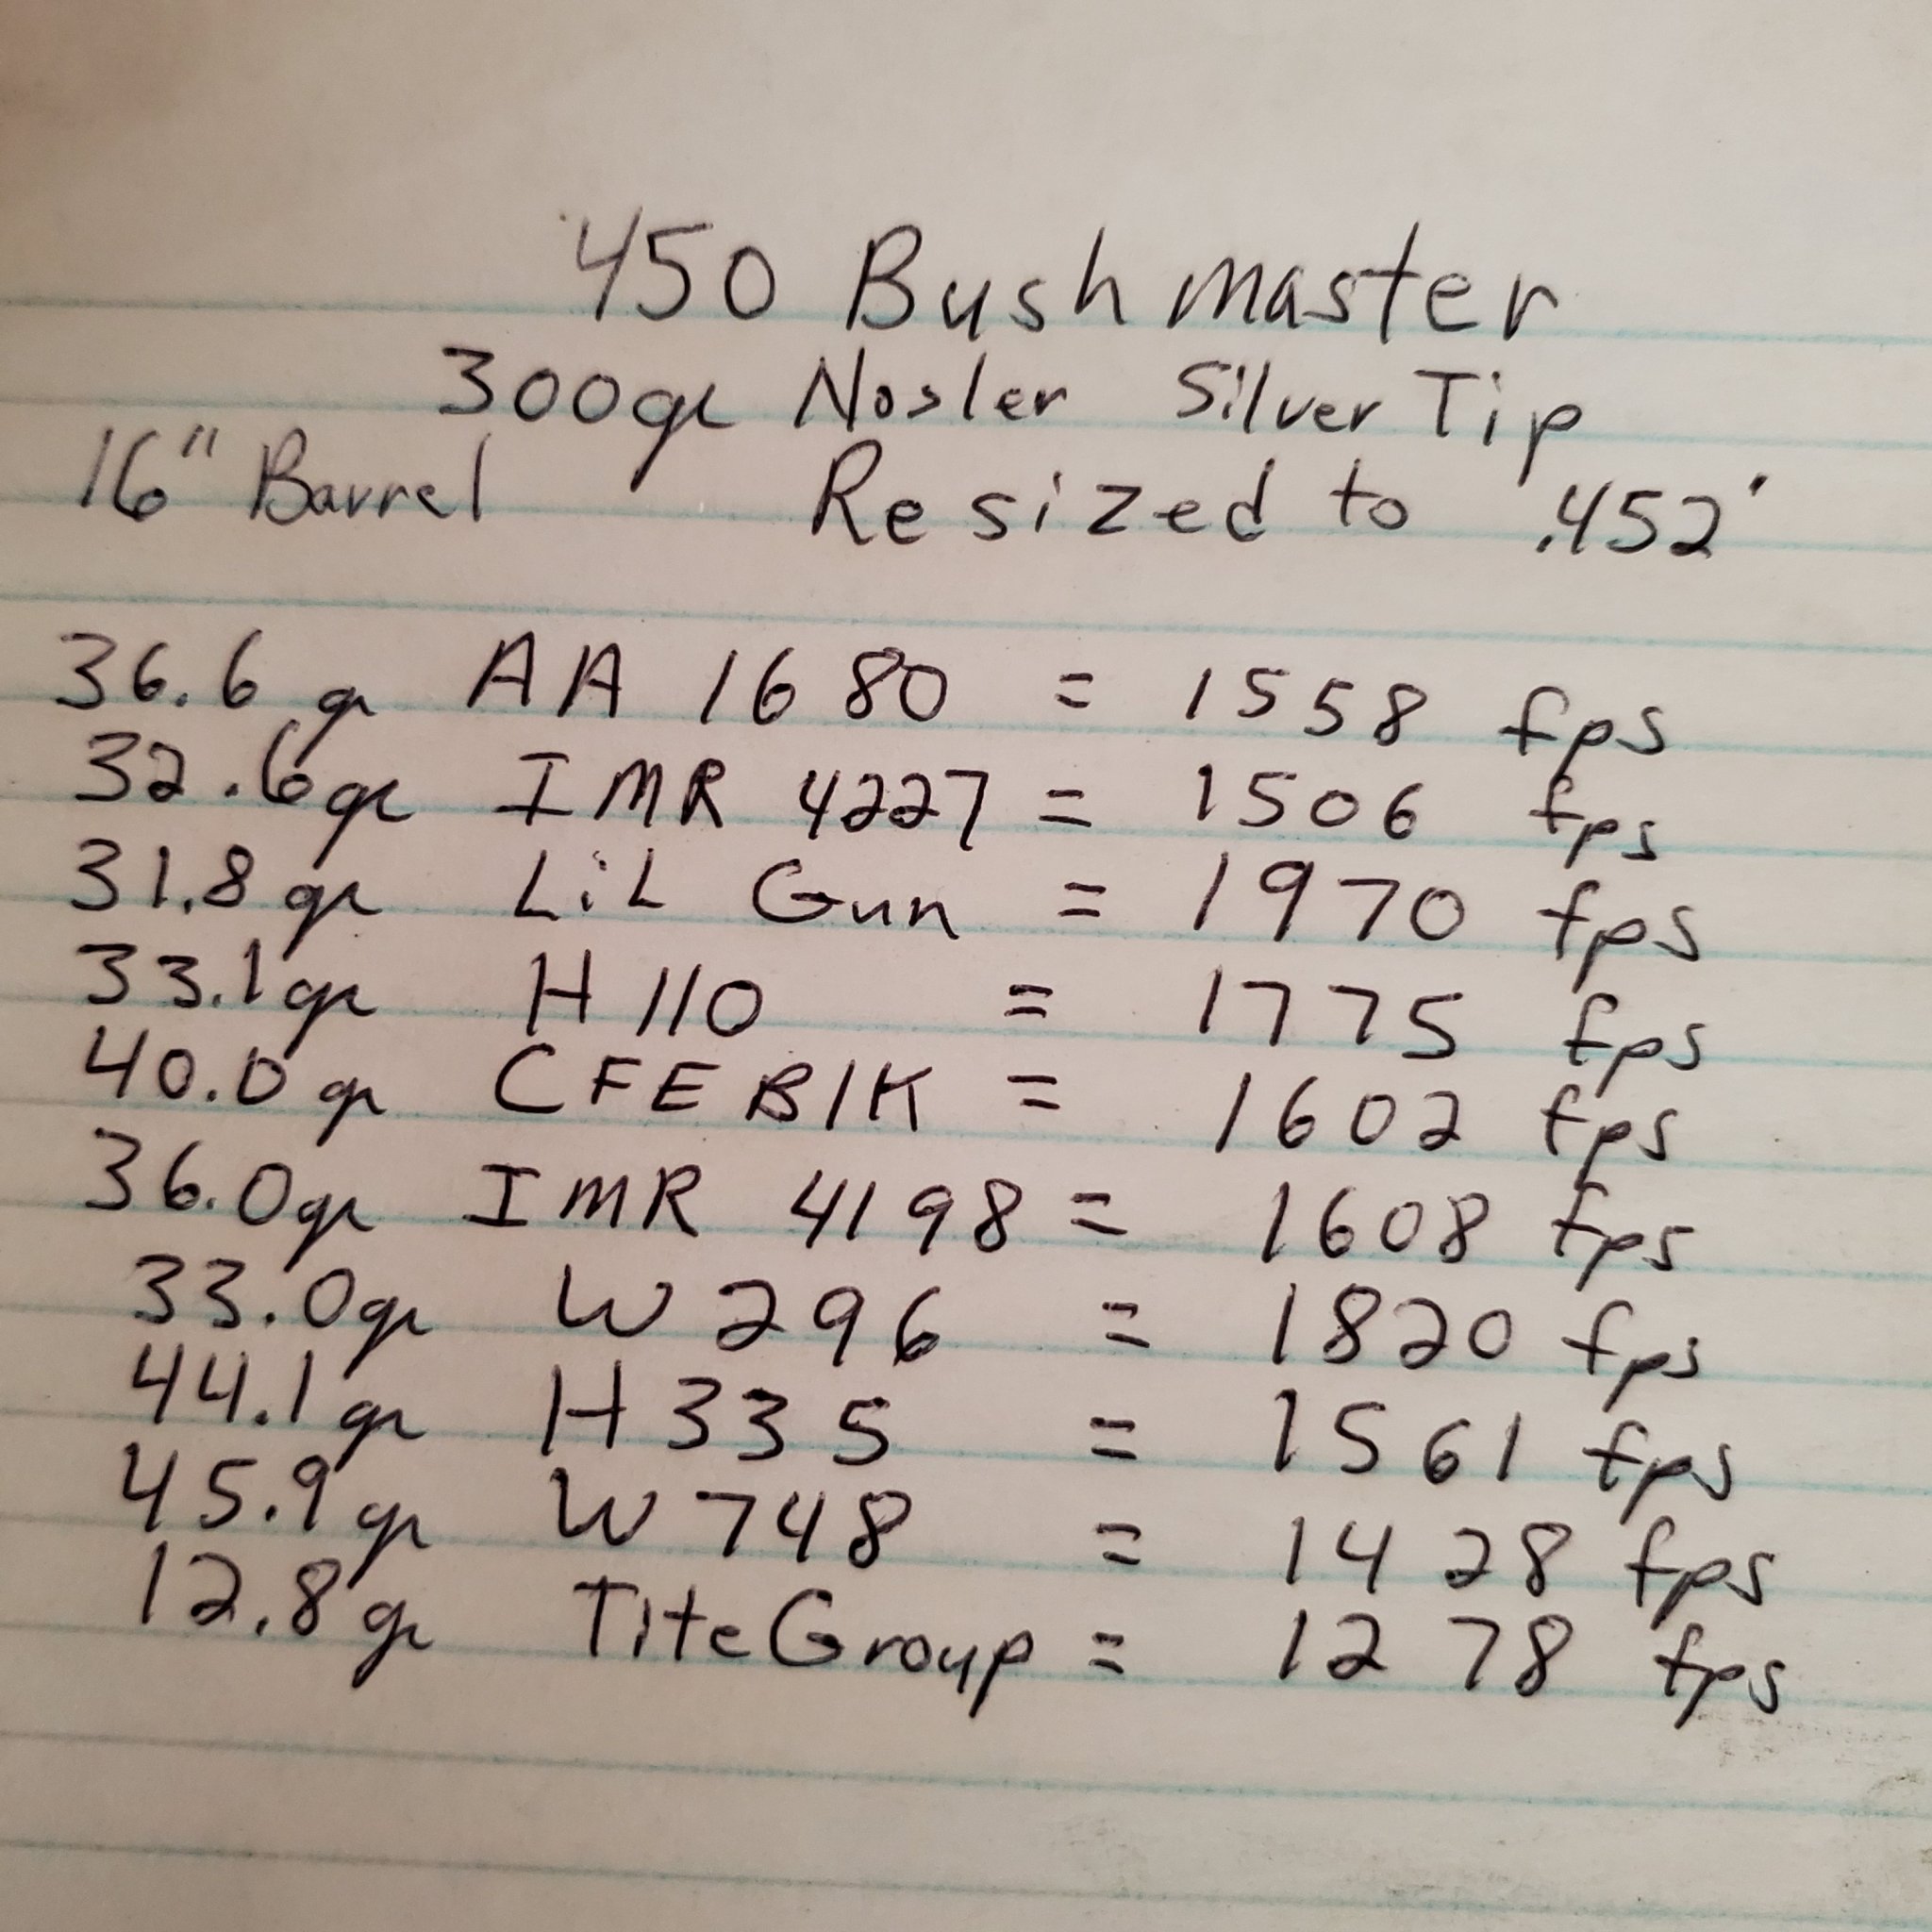 450 Bushmaster
300gr Nosler Silver Tip
16" Barrel Resized to .452'
36.6 gr AA 1680 = 1558 fps
32.6gr IMR 4227 = 1506 fps
31.8gr LiL Gun = 1970 fps
33.1gr H110 = 1775 fps
40.0gr CFE BlK = 1602 fps
36.0gr IMR 4198 = 1608 fps
33.0gr W296 = 1820 fps
44.1gr H335 = 1561 fps
45.9gr W748 = 1428 fps
12.8gr TiteGroup = 1278 fps